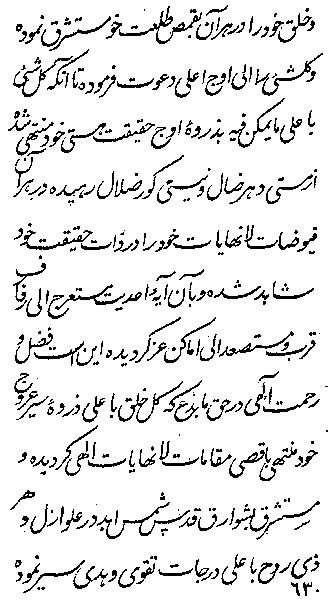 و خلق خود را در هر آن بقمیص طلعت خود مستشرق نموده
و کلشئ را الی اوج اعلی دعوت فرموده تا آنکه کل شئ
با علی ما یمکن فیه بذروهٔ اوج حقیقت هستی خود منتهی شده
از مستی دهر ضال و نیستی کور ضلال رهیده در هر آن
فیوضات لا نهایات خود را در ذات حقیقت خود
شاهد شده و بآن آیهٔ احدیت مستعرج الی رفاف
قرب و مستصعد الی اماکن عز گردیده این است فضل و
رحمت الهی در حق ما بدع که کل خلق با علی ذروهٔ سیر عروج
خود منتهی باقصی مقامات لا نهایات الهی گردیده و
مستشرق بشوارق قدس شمس ابد در علو ازل و هر
ذی روح با علی درجات تقوی و هدی سیر نموده
۶۳۰